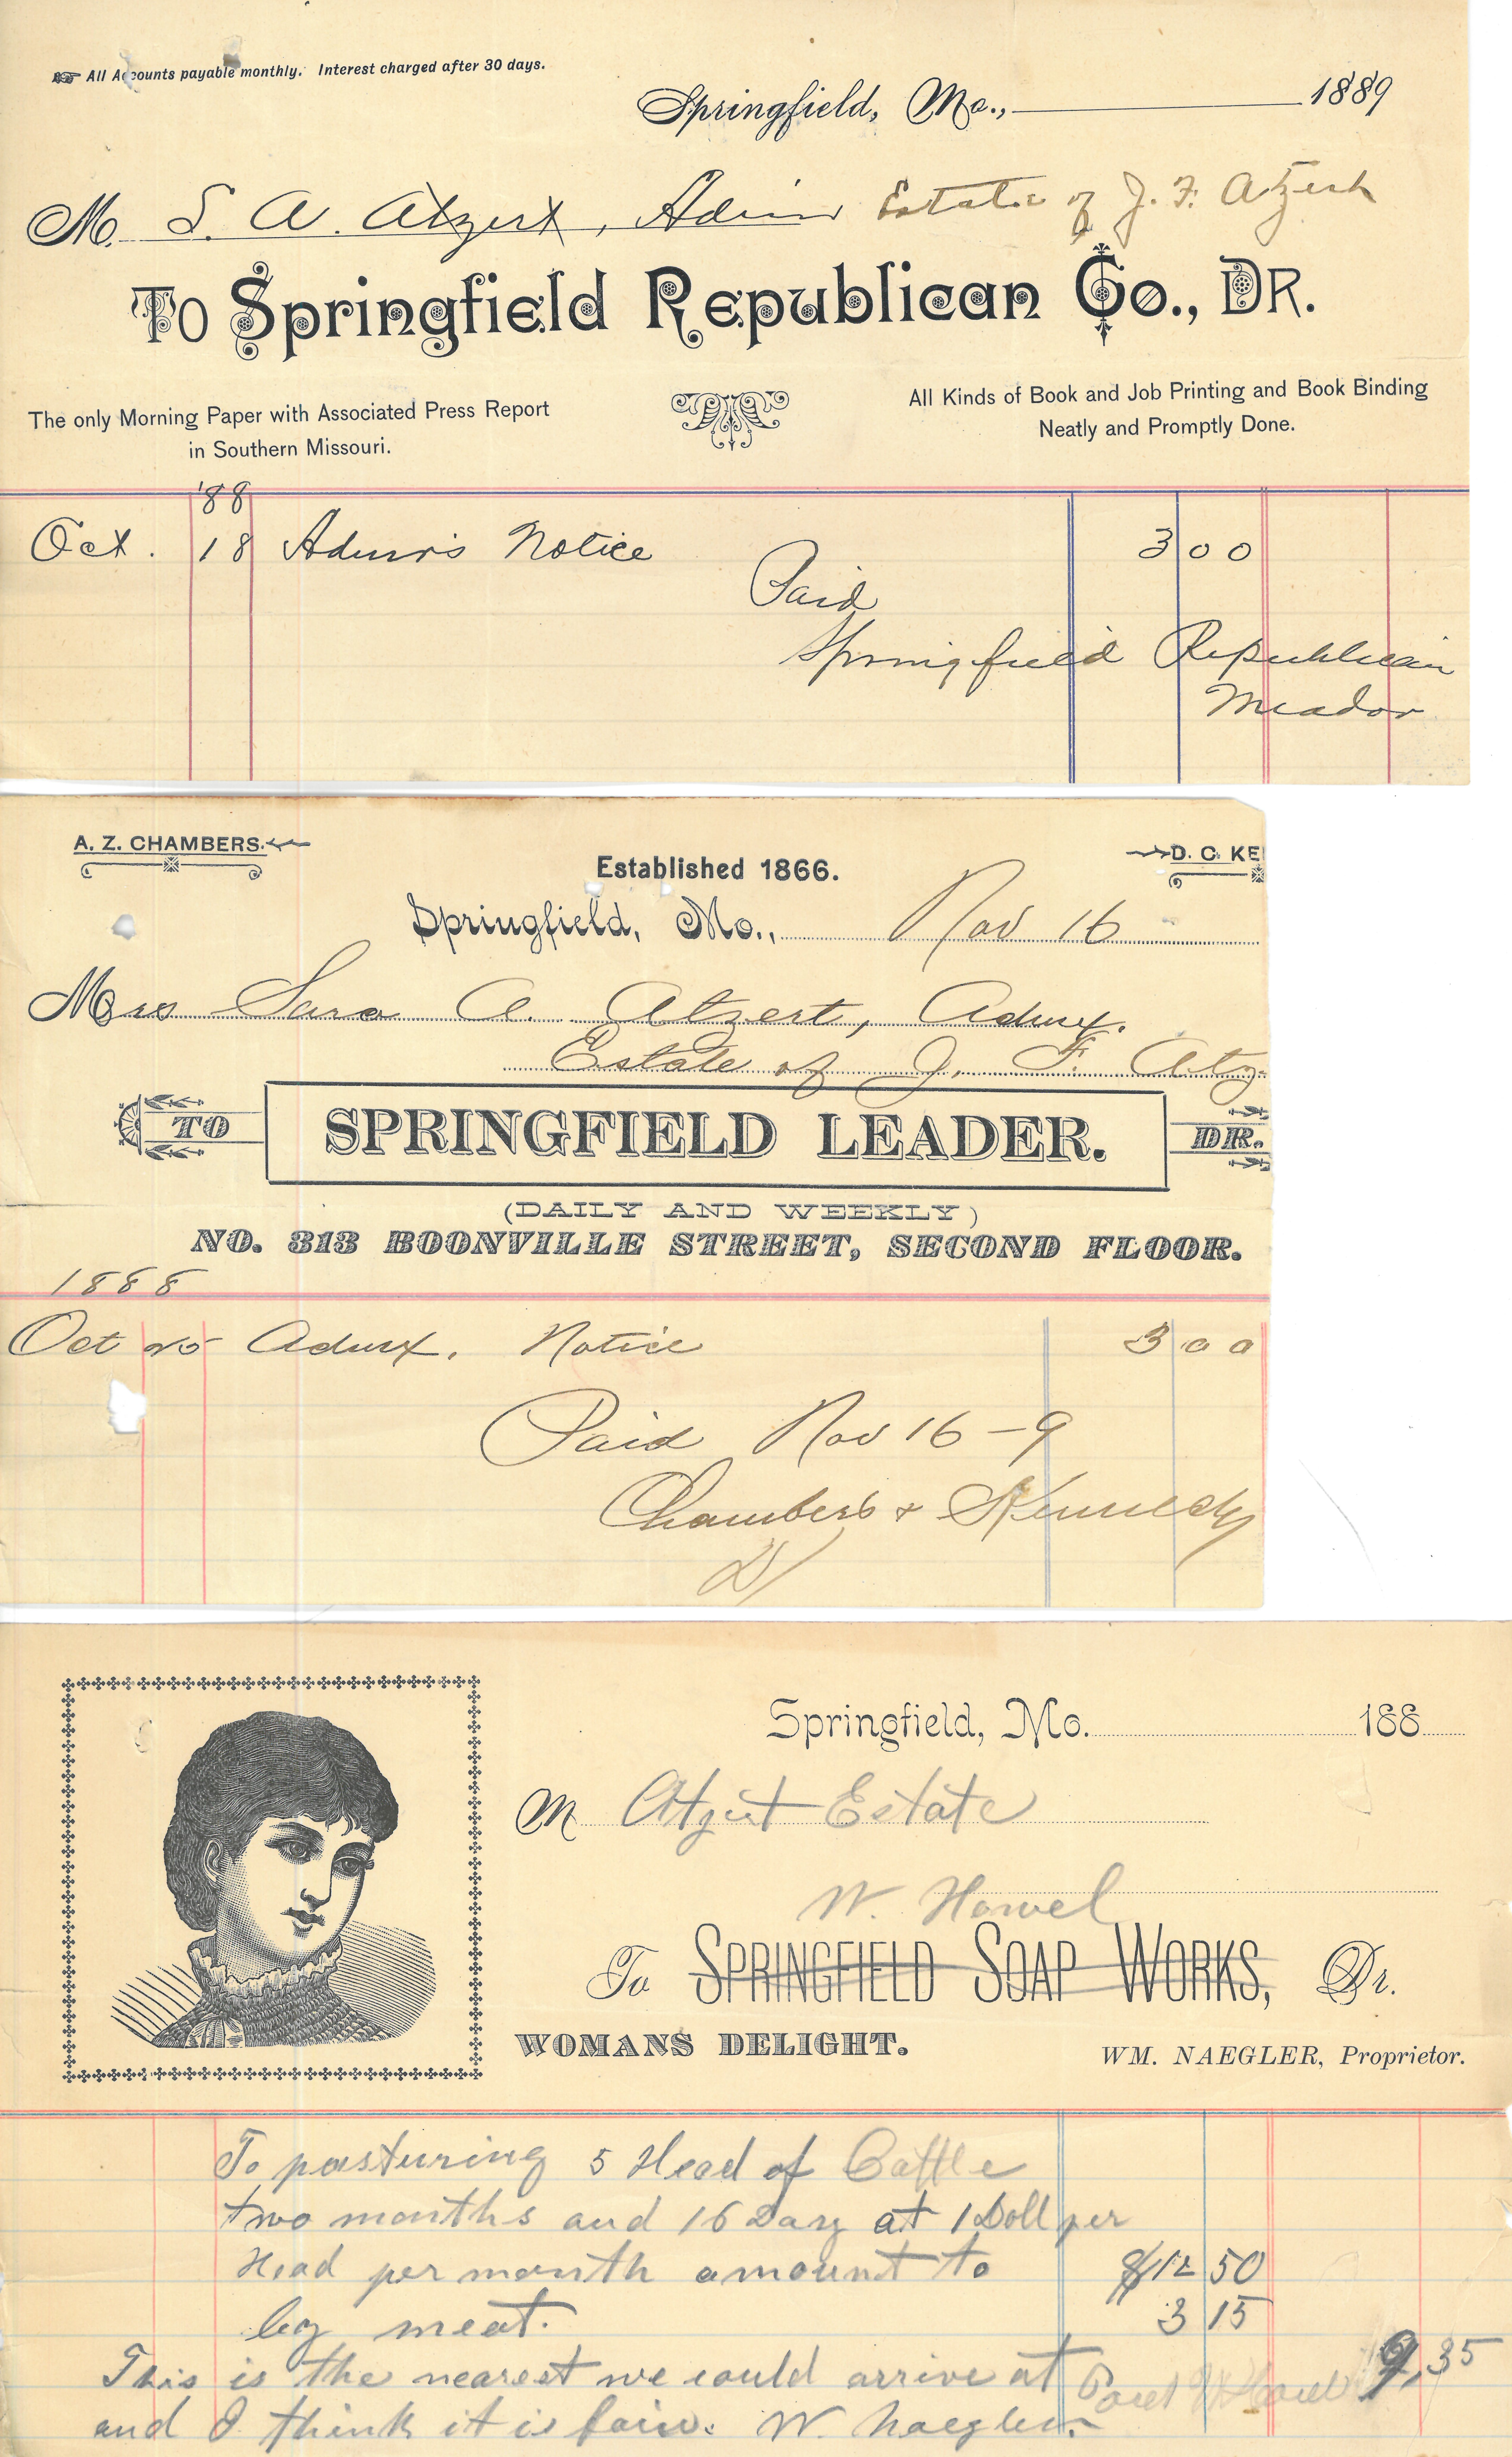 All Accounts payable monthly. Interest charged after 30 days.
Springfield, Mo., 1889
M. S. A. Atzert, Admr Estate of J. F. Atzert
To Springfield Republican Co., Dr.
The only Morning Paper with Associated Press Report
in Southern Missouri.
All Kinds of Book and Job Printing and Book Binding
Neatly and Promptly Done.
'88
Oct. 18 Admr's Notice 3 00
Paid
Springfield Republican
Meador
A. Z. CHAMBERS.
D. C. KE
Established 1866.
Springfield, Mo., Nov 16
Mrs Sara A. Atzert, Admx.
Estate of J. F. Atz
TO SPRINGFIELD LEADER. DR.
(DAILY AND WEEKLY)
NO. 313 BOONVILLE STREET, SECOND FLOOR.
1888
Oct 25 Admx. Notice 3 00
Paid Nov 16 - 9
Chambers & Kennedy
Springfield, Mo. 188
M Atzert Estate
W. Howel
To SPRINGFIELD SOAP WORKS, Dr.
WOMANS DELIGHT.
WM. NAEGLER, Proprietor.
To pasturing 5 Head of Cattle
two months and 16 Days at 1 Doll per
Head per month amount to $12 50
by meat. 3 15
This is the nearest we could arrive at 9,35
and I think it is fair. W. Naegler.